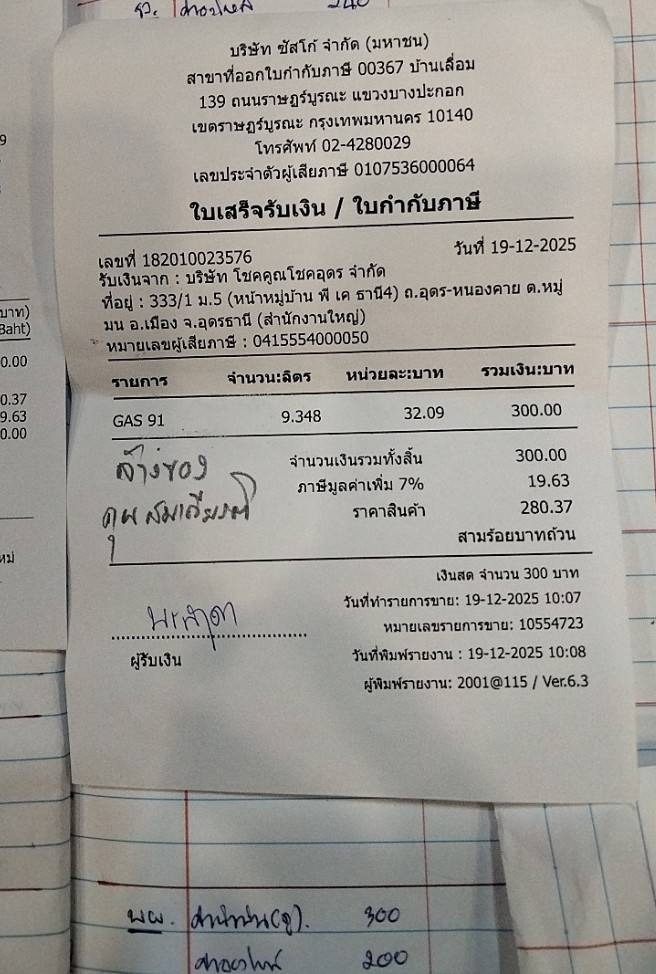 บริษัท ซัสโก้ จำกัด (มหาชน)
สาขาที่ออกใบกำกับภาษี 00367 บ้านเลื่อม
139 ถนนราษฎร์บูรณะ แขวงบางปะกอก
เขตราษฎร์บูรณะ กรุงเทพมหานคร 10140
โทรศัพท์ 02-4280029
เลขประจำตัวผู้เสียภาษี 0107536000064
ใบเสร็จรับเงิน / ใบกำกับภาษี
เลขที่ 182010023576 วันที่ 19-12-2025
รับเงินจาก : บริษัท โชคคูณโชคอุดร จำกัด
ที่อยู่ : 333/1 ม.5 (หน้าหมู่บ้าน พี เค ธานี4) ถ.อุดร-หนองคาย ต.หมู่
มน อ.เมือง จ.อุดรธานี (สำนักงานใหญ่)
หมายเลขผู้เสียภาษี : 0415554000050
รายการ จำนวน:ลิตร หน่วยละ:บาท รวมเงิน:บาท
GAS 91 9.348 32.09 300.00
จำนวนเงินรวมทั้งสิ้น 300.00
ภาษีมูลค่าเพิ่ม 7% 19.63
ราคาสินค้า 280.37
สามร้อยบาทถ้วน
เงินสด จำนวน 300 บาท
วันที่ทำรายการขาย: 19-12-2025 10:07
หมายเลขรายการขาย: 10554723
ผู้รับเงิน
วันที่พิมพ์รายงาน : 19-12-2025 10:08
ผู้พิมพ์รายงาน: 2001@115 / Ver.6.3
บาท)
Baht)
0.00
0.37
9.63
0.00
300
200